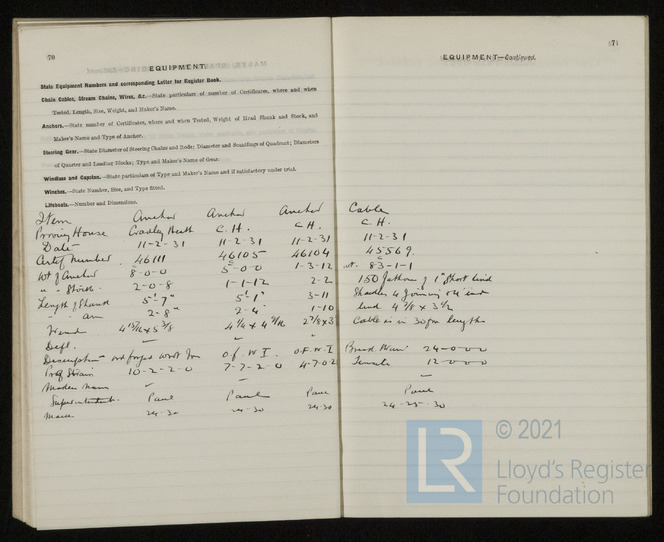 70
EQUIPMENT.
State Equipment Numbers and corresponding Letter for Register Book.
Chain Cables, Stream Chains, Wires, &c.—State particulars of number of Certificates, where and when
Tested, Length, Size, Weight, and Maker's Name.
Anchors.—State number of Certificates, where and when Tested, Weight of Head Shank and Stock, and
Maker's Name and Type of Anchor.
Steering Gear.—State Diameter of Steering Chains and Rods; Diameter and Scantlings of Quadrant; Diameters
of Quarter and Leading Blocks; Type and Maker's Name of Gear.
Windlass and Capstan.—State particulars of Type and Maker's Name and if satisfactory under trial.
Winches.—State Number, Size, and Type fitted.
Lifeboats.—Number and Dimensions.
Item Anchor Anchor Anchor
Proving House Cradley Heath C. H. C. H.
Date 11-2-31 11-2-31 11-2-31
Certif Number 46111 46105 46104
Wt of Anchor 8-0-0 5-0-0 1-3-12
" " Stock 2-0-8 1-1-12 2-2
Length of Shank 5'-7" 5'-1" 3-11
" " arm 2-8" 2-4 1-10
4 13/16 x 5 3/8
Description O.F.W.I. O.F.W.I
Proof Strain 10-2-2-0 7-7-2-0 4-7-0-2
Superintendent
24-30 24-30 24-30
71
EQUIPMENT—Continued.
Cable
C. H.
11-2-31
45569.
wt. 83-1-1
150 fathoms of 1" Short link
Shackles & Joining
link 4 5/8 x 3 1/2
Cable is in 30 fm lengths
24-0-0-0
Tensile 12-0-0-0
24-25-30
© 2021
LR
Lloyd's Register
Foundation